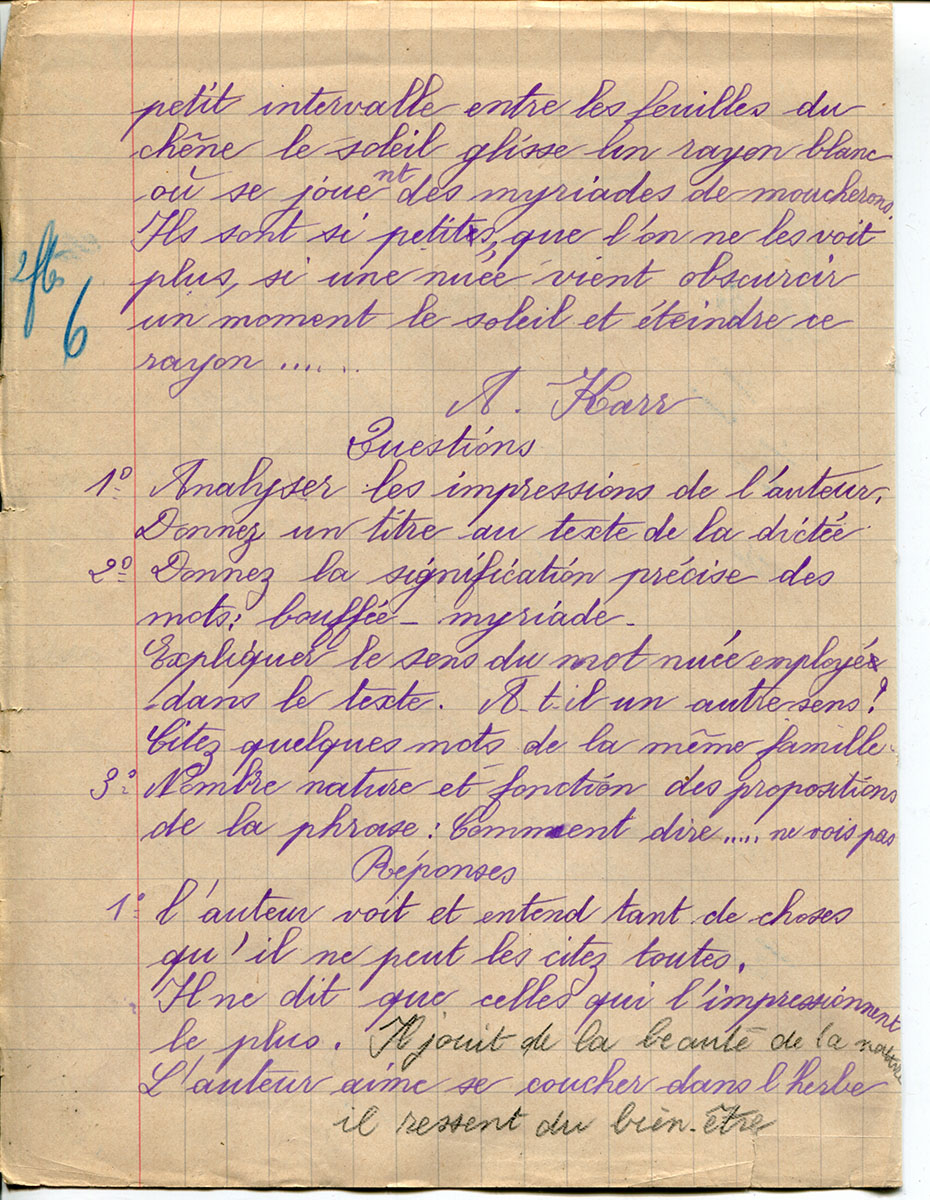 petit intervalle entre les feuilles du
chêne le soleil glisse un rayon blanc
où se jouent des myriades de moucherons.
Ils sont si petits, que l'on ne les voit
plus, si une nuée vient obscurcir
un moment le soleil et éteindre ce
rayon ......
6
A. Karr
Questions
1° Analyser les impressions de l'auteur.
Donnez un titre au texte de la dictée
2° Donnez la signification précise des
mots: bouffée - myriade.
Expliquer le sens du mot nuée employé
dans le texte. A-t-il un autre sens?
Citez quelques mots de la même famille.
3° Nombre nature et fonction des propositions
de la phrase: Comment dire..... ne vois pas
Réponses
1° L'auteur voit et entend tant de choses
qu'il ne peut les citez toutes.
Il ne dit que celles qui l'impressionnent
le plus. Il jouit de la beauté de la nature
L'auteur aime se coucher dans l'herbe
il ressent du bien-être